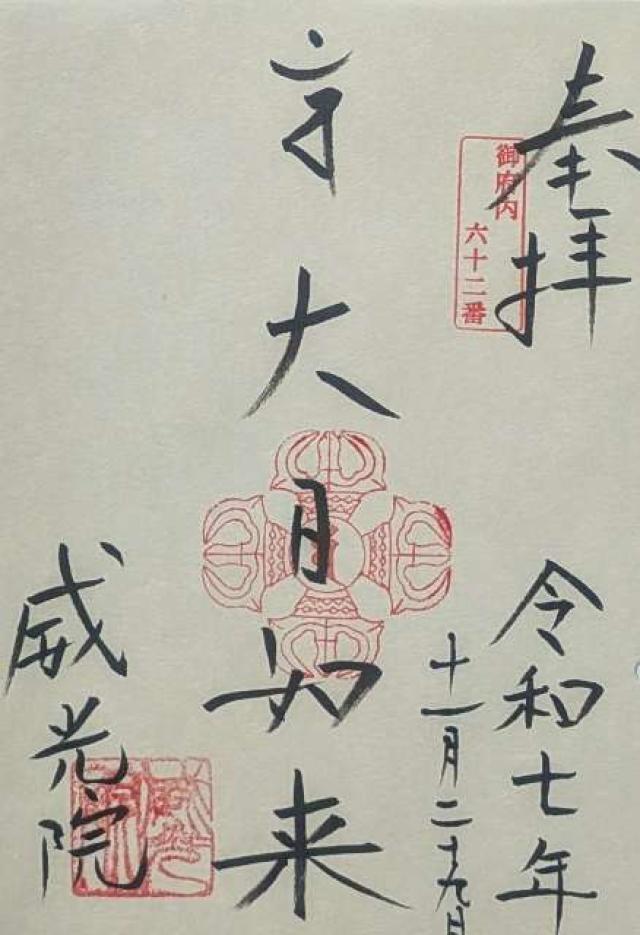 奉拝
御府内
六十二番
大日如来
令和七年
十一月二十九日
威光院